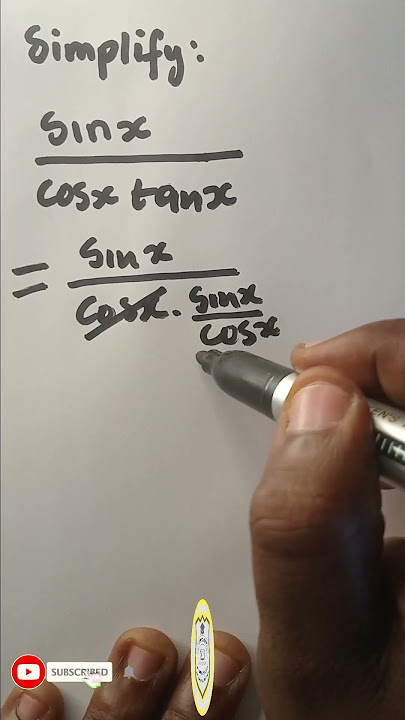 Simplify:
sinx
cosx tanx
= sinx
cosx · sinx
cosx
SUBSCRIBED